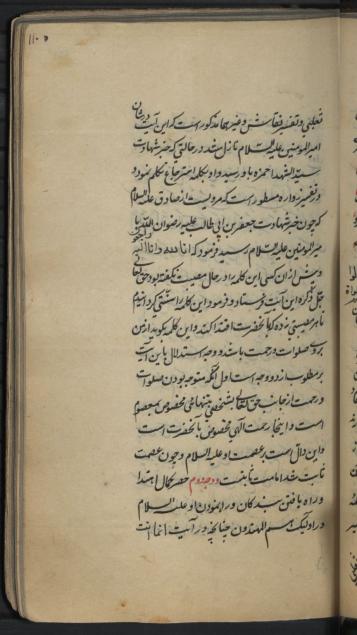 ثعلبی و تفسیر نقاش و غیر هما مذکور است که این آیت در شان
امیر المومنین علیه السلام نازل شد در حالتی که خبر شهادت
سید الشهدا حمزه باو رسید و او بکلمه استرجاع تکلم نمود و
در تفسیر مسطور است که مرویست از صادق علیه السلام
که چون خبر شهادت جعفر بن ابی طالب علیه رضوان الله با
میر المومنین علیه السلام رسید فرمود که انا لله و انا الیه راجعون
و پیش از ان کسی این کلمه را در حال مصیبت نگفته بود حق تعالی
این آیت فرستاد و فرمود این کلمه را
تا هر مصیبتی زده که بآنحضرت اقتدا کند و این کلمه بگوید از من
بروی صلوات و رحمت باشد و وجه استدلال باین آیت
بر مطلوب از دو وجه است اول آنکه متوجه بودن صلوات
و رحمت از جانب حق تعالی بشخصی بتنهائی مخصوص بمعصوم
است و اینجا رحمت الهی مخصوص بآنحضرت است
و این دال است بر عصمت او علیه السلام و چون عصمت
ثابت شد امامت ثابتست وجه دوم حصر کمال اهتدا
و راه یافتن بندکان و راهنمودن او علیه السلام
در اولئک هم المهتدون چنانچه در آیت انما انت